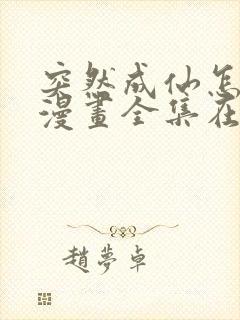 突然成仙怎
漫畫全集在
趙夢卓